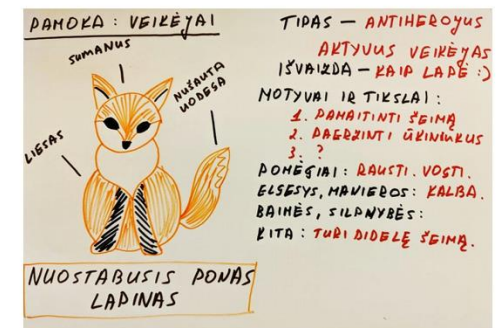 PAMOKA : VEIKĖJAI
SUMANUS
NUŠAUTA
UODEGA
LIESAS
NUOSTABUSIS PONAS
LAPINAS
TIPAS – ANTIHEROJUS
AKTYVUS VEIKĖJAS
IŠVAIZDA – KAIP LAPĖ :)
MOTYVAI IR TIKSLAI :
1. PAMAITINTI ŠEIMĄ
2. PAERZINTI ŪKININKUS
3. ?
POMĖGIAI : RAUSTI. VOGTI.
ELGESYS, MANIEROS : KALBA.
BAIMĖS, SILPNYBĖS :
KITA : TURI DIDELĘ ŠEIMĄ.